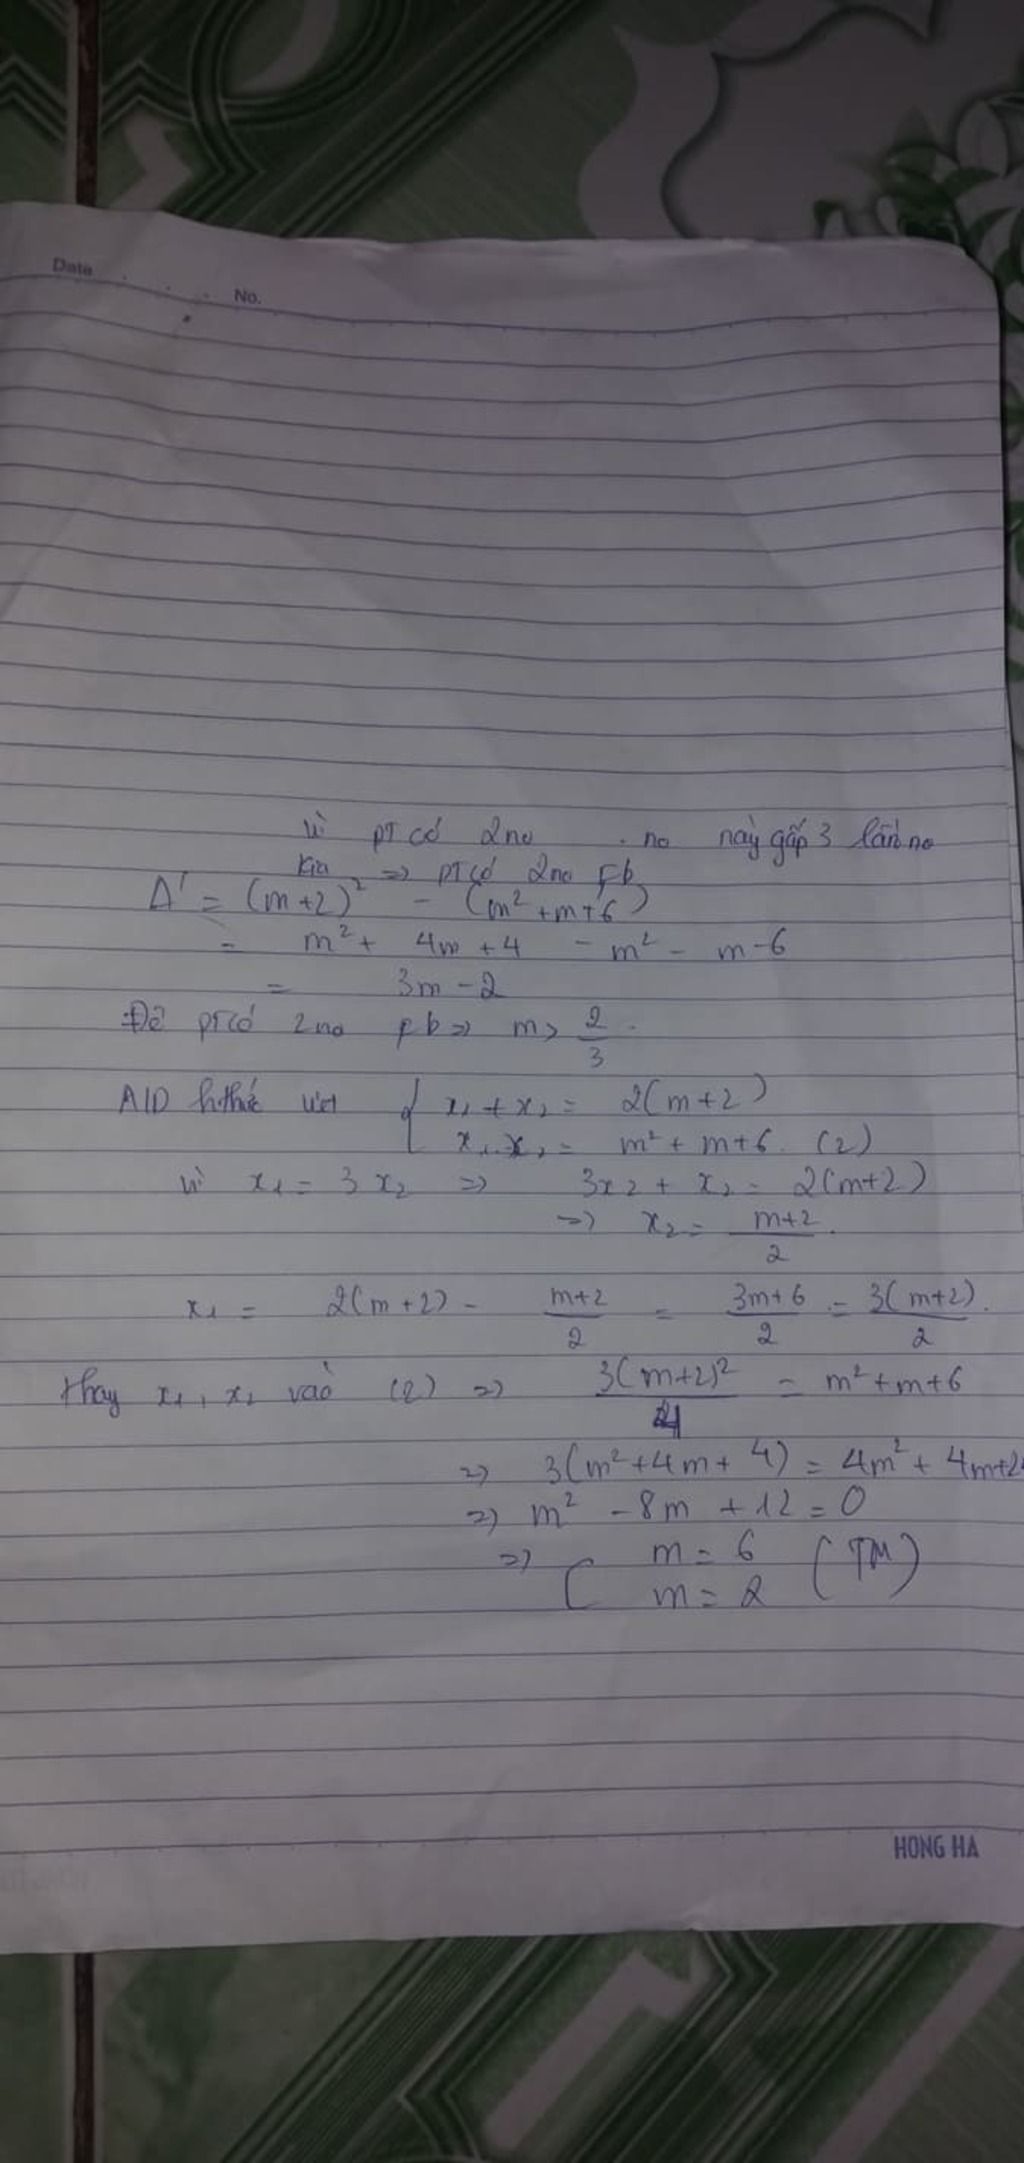 Date
No.
Vì pt có 2 no . no này gấp 3 lần no
kia => pt có 2 no pb
Δ' = (m+2)² - (m²+m+6)
= m² + 4m + 4 - m² - m - 6
= 3m - 2
Để pt có 2 no pb => m > 2/3 .
AD hthức viet { x₁ + x₂ = 2(m+2)
x₁.x₂ = m² + m + 6. (2)
Vì x₁ = 3x₂ => 3x₂ + x₂ = 2(m+2)
=> x₂ = (m+2)/2 .
x₁ = 2(m+2) - (m+2)/2 = (3m+6)/2 = 3(m+2)/2 .
thay x₁, x₂ vào (2) => 3(m+2)²/4 = m²+m+6
=> 3(m²+4m+4) = 4m² + 4m+24
=> m² - 8m + 12 = 0
=> [ m = 6 (TM)
m = 2
HONG HA